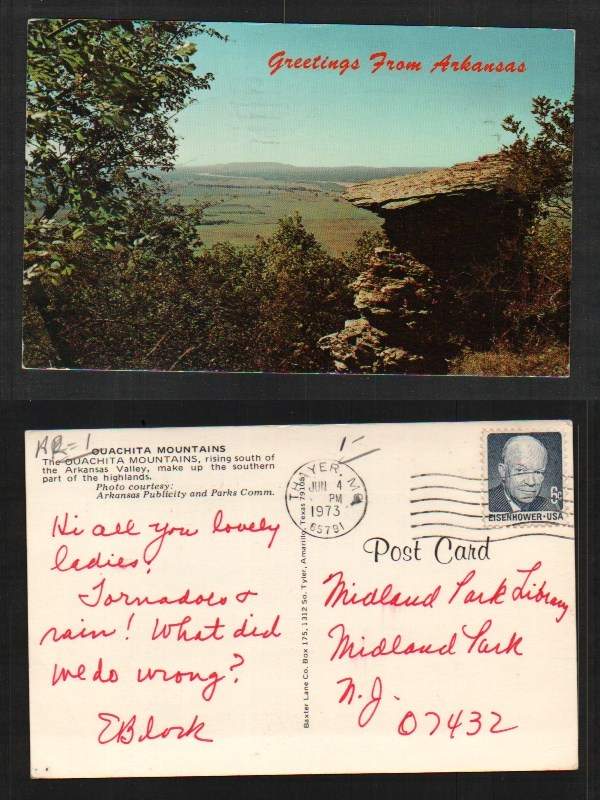 Greetings From Arkansas
AR-1
OUACHITA MOUNTAINS
The OUACHITA MOUNTAINS, rising south of
the Arkansas Valley, make up the southern
part of the highlands.
Photo courtesy:
Arkansas Publicity and Parks Comm.
Hi all you lovely
ladies,
Tornadoes &
rain! What did
we do wrong?
EBlock
Baxter Lane Co. Box 175, 1312 So. Tyler, Amarillo, Texas
1-
THAYER, MO
JUN 4
PM
1973
65791
6c
EISENHOWER·USA
Post Card
Midland Park Library
Midland Park
N.J.
07432